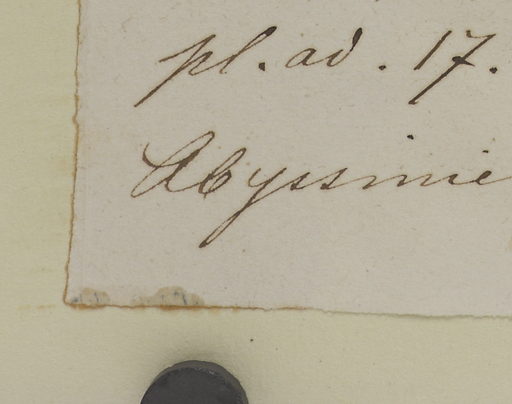 pl. ad. 17.
Abyssinie